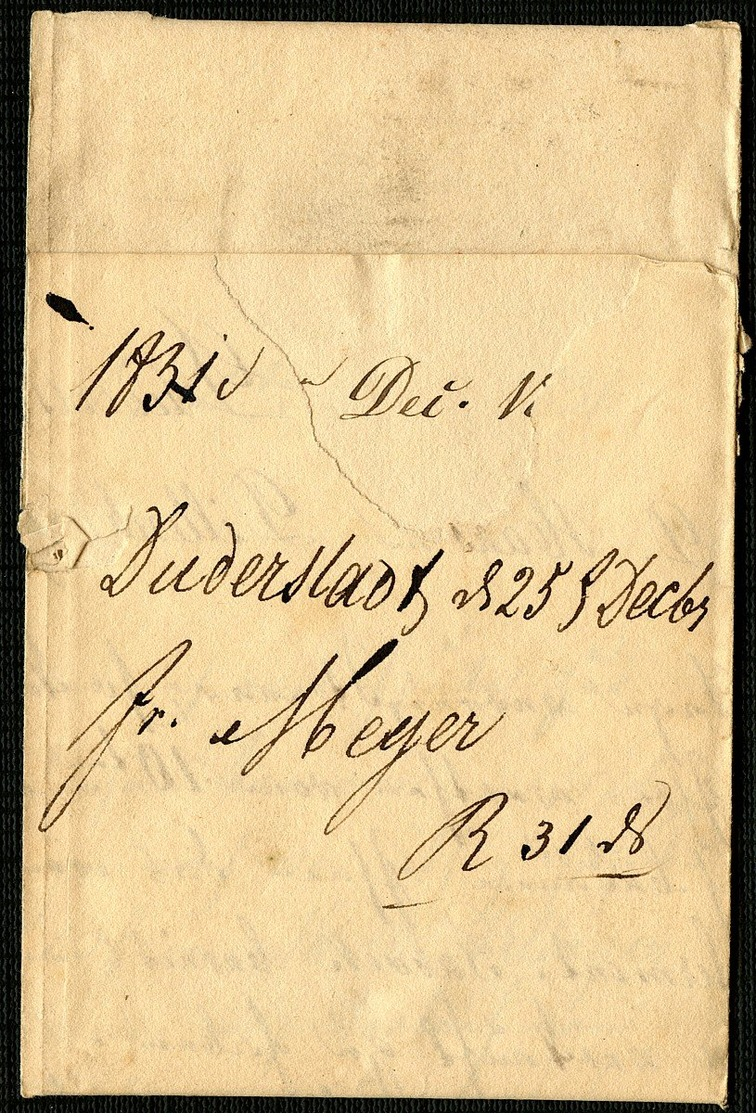 1831
Dec.
Duderstadt, d 25 Decbr
Fr. Meyer
R 31 d